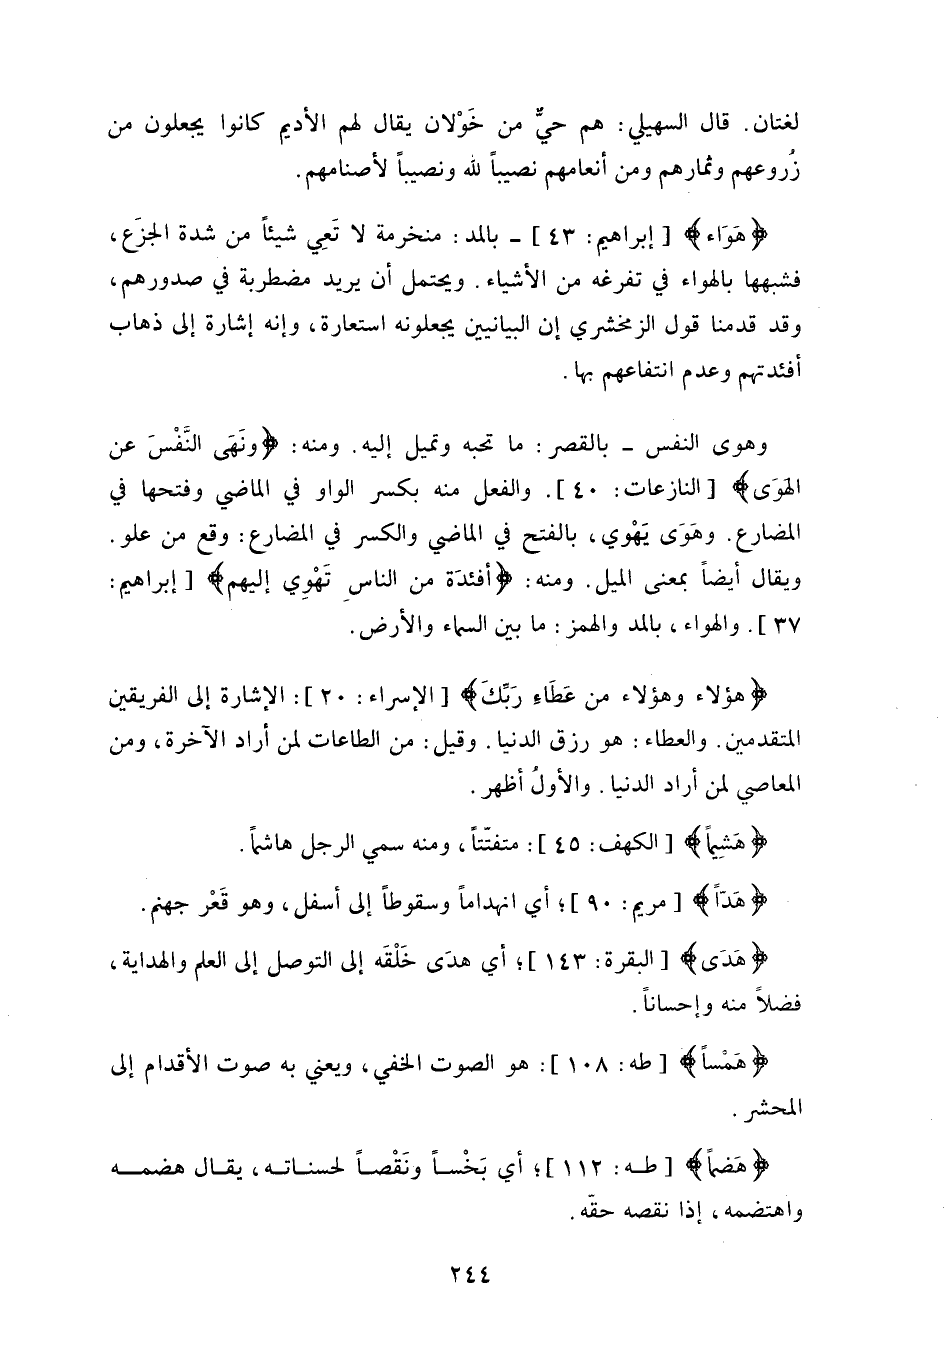 لغتان. قال السهيلي: هم حيٌّ من خَوْلان يقال لهم الأديم كانوا يجعلون من
زُروعهم وثمارهم ومن أنعامهم نصيباً لله ونصيباً لأصنامهم.
﴿هَوَاء﴾ [إبراهيم: ٤٣] ـ بالمد: منخرمة لا تَعِي شيئاً من شدة الجزَع،
فشبهها بالهواء في تفرغه من الأشياء. ويحتمل أن يريد مضطربة في صدورهم،
وقد قدمنا قول الزمخشري إن البيانيين يجعلونه استعارة، وإنه إشارة إلى ذهاب
أفئدتهم وعدم انتفاعهم بها.
وهوى النفس ـ بالقصر: ما تحبه وتميل إليه. ومنه: ﴿ونَهَى النَّفْسَ عن
الهَوَى﴾ [النازعات: ٤٠]. والفعل منه بكسر الواو في الماضي وفتحها في
المضارع. وهَوَى يَهْوِي، بالفتح في الماضي والكسر في المضارع: وقع من علو.
ويقال أيضاً بمعنى الميل. ومنه: ﴿أفئدَة من الناسِ تَهْوِي إليهم﴾ [إبراهيم:
٣٧]. والهواء، بالمد والهمز: ما بين السماء والأرض.
﴿هؤلاء وهؤلاء من عَطَاءِ رَبِّكَ﴾ [الإسراء: ٢٠]: الإشارة إلى الفريقين
المتقدمين. والعطاء: هو رزق الدنيا. وقيل: من الطاعات لمن أراد الآخرة، ومن
المعاصي لمن أراد الدنيا. والأولُ أظهر.
﴿هَشيماً﴾ [الكهف: ٤٥]: متفتّتاً، ومنه سمي الرجل هاشماً.
﴿هَدّاً﴾ [مريم: ٩٠]؛ أي انهداماً وسقوطاً إلى أسفل، وهو قَعْر جهنم.
﴿هَدَى﴾ [البقرة: ١٤٣]؛ أي هدَى خَلْقَه إلى التوصل إلى العلم والهداية،
فضلاً منه وإحساناً.
﴿هَمْساً﴾ [طه: ١٠٨]: هو الصوت الخفي، ويعني به صوت الأقدام إلى
المحشر.
﴿هَضماً﴾ [طـه: ١١٢]؛ أي بَخْسـاً ونَقْصـاً لحسنـاتـه، يقـال هضمـه
واهتضمه، إذا نقصه حقّه.
٢٤٤